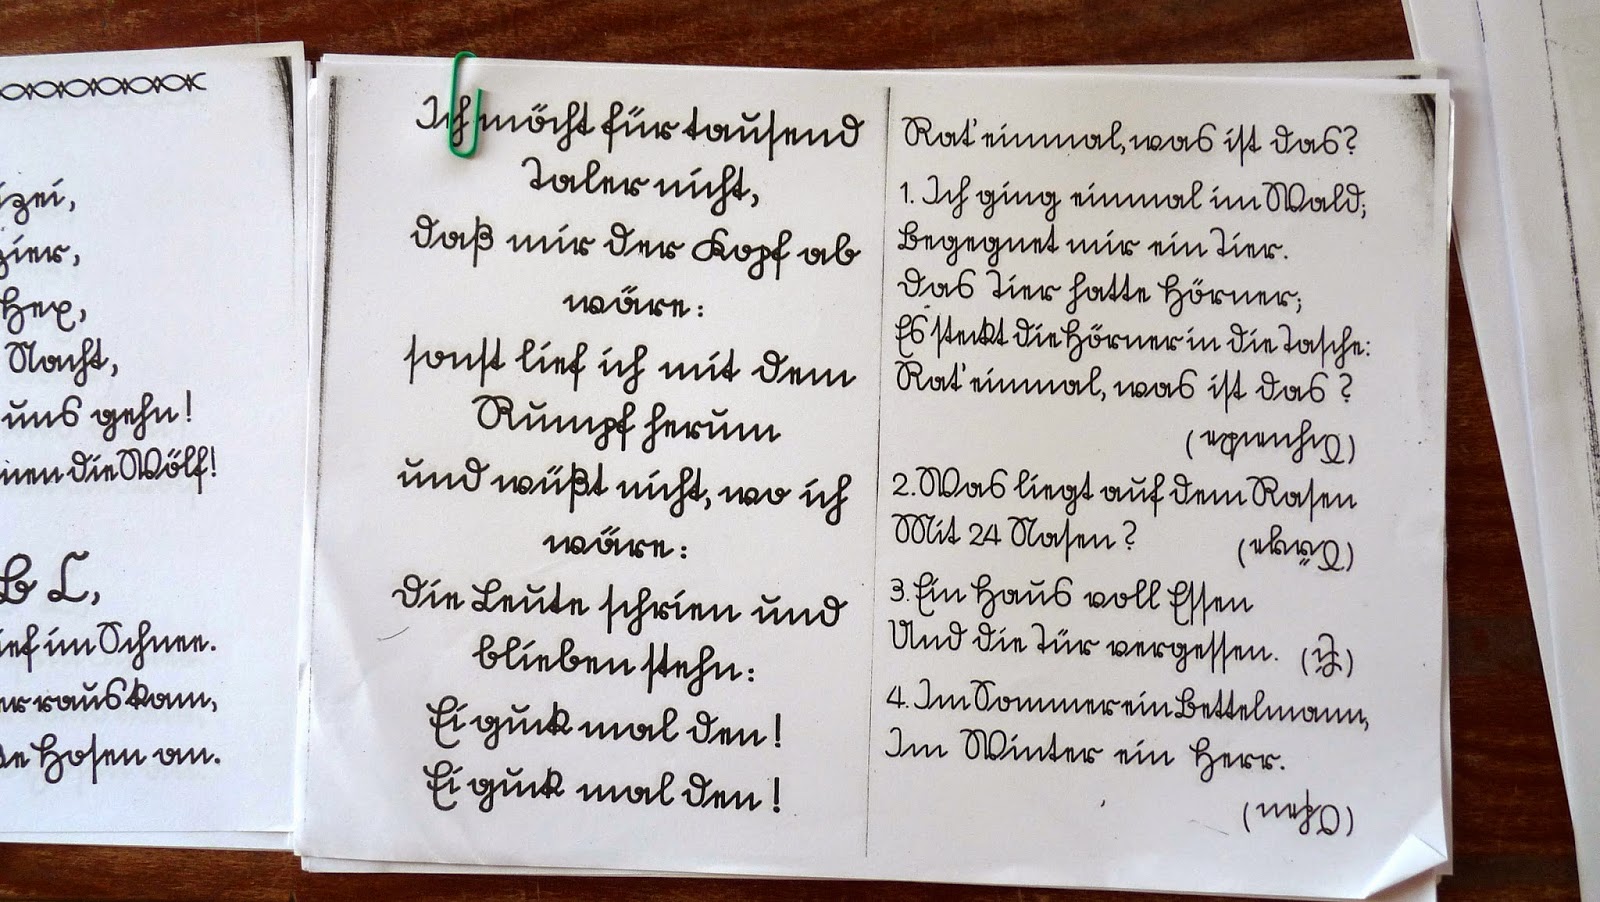 izei,
zier,
Hex,
Nacht,
uns gehn!
nen die Wölf!
B C,
ief im Schnee.
er rauskam,
e Hosen an.
Ich möcht für tausend
Taler nicht,
daß mir der Kopf ab
wäre:
sonst lief ich mit dem
Rumpf herum
und wüßt nicht, wo ich
wäre:
Die Leute schrien und
blieben stehn:
Ei guck mal den!
Ei guck mal den!
Rat' einmal, was ist das?
1. Ich ging einmal im Wald;
Begegnet mir ein Tier.
Das Tier hatte Hörner;
Es steckt die Hörner in die Tasche:
Rat' einmal, was ist das?
(Schnecke)
2. Was liegt auf dem Rasen
Mit 24 Nasen? (Säge)
3. Ein Haus voll Essen
Und die Tür vergessen. (Ei)
4. Im Sommer ein Bettelmann,
Im Winter ein Herr.
(Ofen)